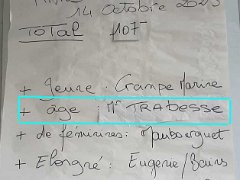 14 Octobre 2023
TOTAL 107
+ Jeune : Crampe Marine
+ âge : Mr TRABESSE
+ de féminines : Maubourguet
+ Elongné : Eugénie/Bains